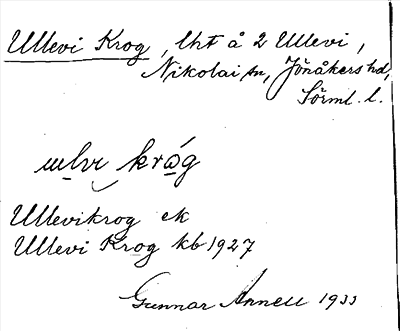 Ullevi Krog, lht å 2 Ullevi,
Nikolai sn, Jönåkers hd,
Sörml. l.
ɯlvi krǻg
Ullevikrog ek
Ullevi Krog kb 1927
Gunnar Annell 1933